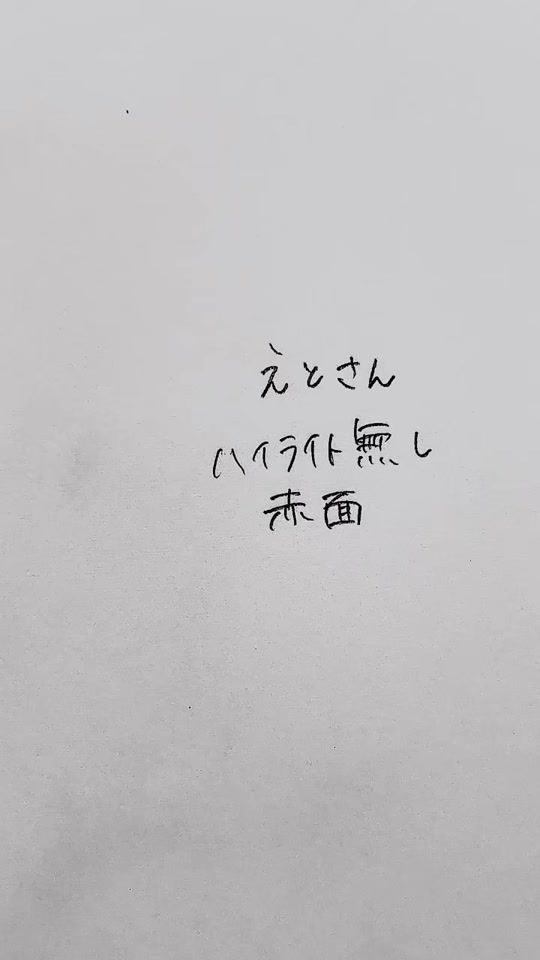 えとさん
ハイライト無し
赤面